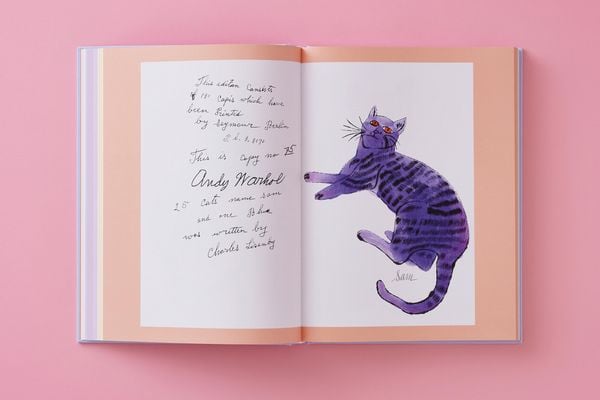 This edition Consists
of 190 Copis which have
been Printed
by Seymour Berlin
This is copy no 75
Andy Warhol
25 cats name sam
and one Blue
was written by
Charles Lisanby
Sam